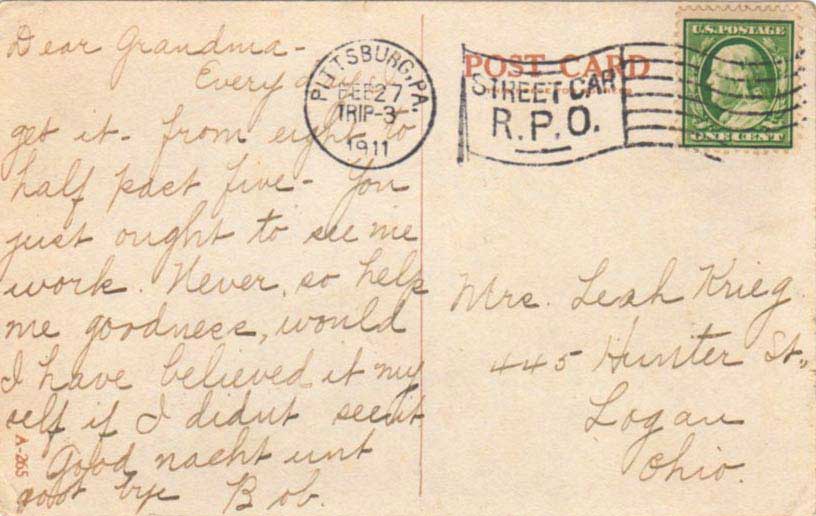 Dear Grandma -
Every
get it - from eight to
half past five - You
just ought to see me
work. Never, so help
me goodness, would
I have believed it my
self if I didnt see it
Good nacht unt
goot bye Bob.
A-265
PITTSBURG, PA.
FEB 27
TRIP-3
1911
POST CARD
STREET CAR
R.P.O.
U.S. POSTAGE
ONE CENT
Mrs. Leah Krieg
445 Hunter St.,
Logan
Ohio.